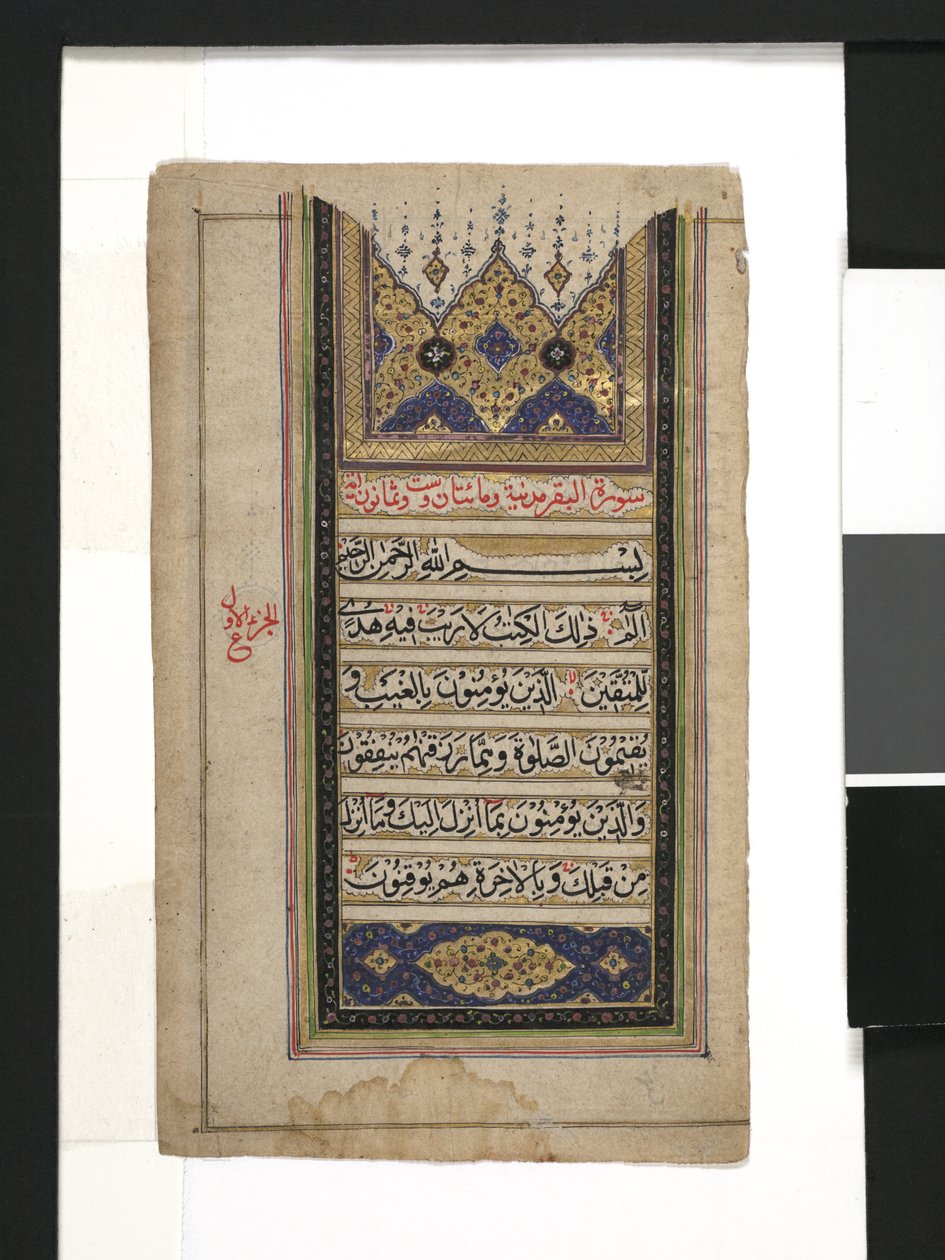 سورة البقر مدنية ومائتان وست وثمانون آية
بِسْمِ اللهِ الرَّحْمٰنِ الرَّحِيْمِ
الٓمّٓ ذٰلِكَ الْكِتٰبُ لَا رَيْبَ فِيْهِ هُدًى
لِّلْمُتَّقِيْنَ الَّذِيْنَ يُؤْمِنُوْنَ بِالْغَيْبِ وَ
يُقِيْمُوْنَ الصَّلٰوةَ وَمِمَّا رَزَقْنٰهُمْ يُنْفِقُوْنَ
وَالَّذِيْنَ يُؤْمِنُوْنَ بِمَآ اُنْزِلَ اِلَيْكَ وَمَآ اُنْزِلَ
مِنْ قَبْلِكَ وَبِالْاٰخِرَةِ هُمْ يُوْقِنُوْنَ
الجزء الاول
ع